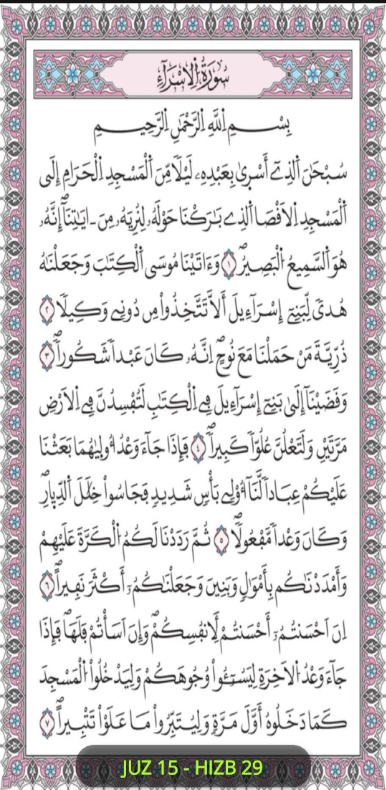 سُورَةُ الْإِسْرَاءِ
بِسْمِ اِللَّهِ اِلرَّحْمَٰنِ اِلرَّحِيمِ
سُبْحَٰنَ اَلذِےٓ أَسْر۪يٰ بِعَبْدِهِۦ لَيْلاٗ مِّنَ اَلْمَسْجِدِ اِلْحَرَامِ إِلَى
اَلْمَسْجِدِ اِلَاقْصَا اَلذِے بَٰرَكْنَا حَوْلَهُۥ لِنُرِيَهُۥ مِنَ ـ ايَٰتِنَآۖ إِنَّهُۥ
هُوَ اَلسَّمِيعُ اُلْبَصِيرُۖ ١ وَءَاتَيْنَا مُوسَى اَلْكِتَٰبَ وَجَعَلْنَٰهُ
هُدىٗ لِّبَنِےٓ إِسْرَآءِيلَ أَلَّا تَتَّخِذُواْ مِن دُونِے وَكِيلاٗۖ ٢
ذُرِّيَّةَ مَنْ حَمَلْنَا مَعَ نُوحٍۖ اِنَّهُۥ كَانَ عَبْداٗ شَكُوراٗۖ ٣
وَقَضَيْنَآ إِلَىٰ بَنِےٓ إِسْرَآءِيلَ فِے اِلْكِتَٰبِ لَتُفْسِدُنَّ فِے اِلَارْضِ
مَرَّتَيْنِ وَلَتَعْلُنَّ عُلُوّاٗ كَبِيراٗۖ ٤ فَإِذَا جَآءَ وَعْدُ أُول۪يٰهُمَا بَعَثْنَا
عَلَيْكُمْ عِبَاداٗ لَّنَآ أُوْلِے بَأْسٖ شَدِيدٖ فَجَاسُواْ خِلَٰلَ اَلدِّي۪ارِۖ
وَكَانَ وَعْداٗ مَّفْعُولاٗۖ ٥ ثُمَّ رَدَدْنَا لَكُمُ اُلْكَرَّةَ عَلَيْهِمْ
وَأَمْدَدْنَٰكُم بِأَمْوَٰلٖ وَبَنِينَ وَجَعَلْنَٰكُمُۥٓ أَكْثَرَ نَفِيراٗۖ ٦
اِنَ اَحْسَنتُمُۥٓ أَحْسَنتُمْ لِأَنفُسِكُمْۖ وَإِنَ اَسَأْتُمْ فَلَهَاۖ فَإِذَا
جَآءَ وَعْدُ اُلَاخِرَةِ لِيَسُـُٔواْ وُجُوهَكُمْ وَلِيَدْخُلُواْ اُلْمَسْجِدَ
كَمَا دَخَلُوهُ أَوَّلَ مَرَّةٖ وَلِيُتَبِّرُواْ مَا عَلَوْاْ تَتْبِيراٗۖ ٧
JUZ 15 - HIZB 29